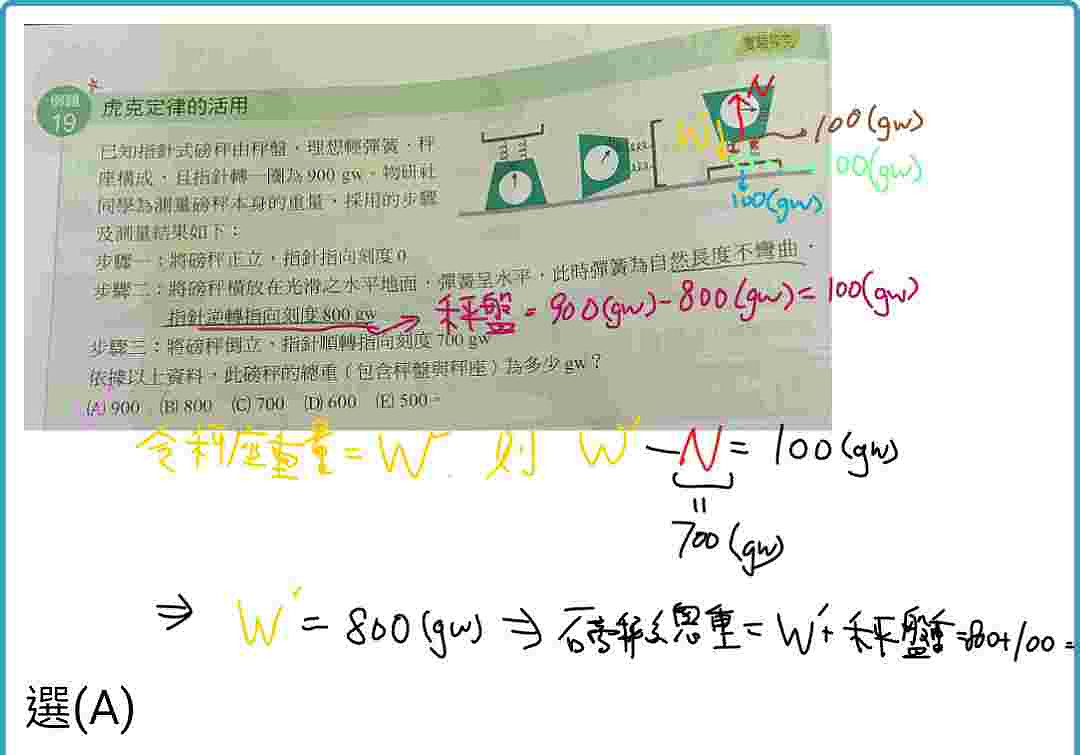 實驗探究
例題
19
虎克定律的活用
已知指針式磅秤由秤盤、理想輕彈簧、秤
座構成,且指針轉一圈為 900 gw。物研社
同學為測量磅秤本身的重量,採用的步驟
及測量結果如下:
步驟一:將磅秤正立,指針指向刻度 0
步驟二:將磅秤橫放在光滑之水平地面,彈簧呈水平,此時彈簧為自然長度不彎曲,
指針逆轉指向刻度 800 gw
步驟三:將磅秤倒立,指針順轉指向刻度 700 gw
依據以上資料,此磅秤的總重(包含秤盤與秤座)為多少 gw?
(A) 900 (B) 800 (C) 700 (D) 600 (E) 500。
N
W
100(gw)
100(gw)
100(gw)
秤盤 = 900(gw) - 800(gw) = 100(gw)
令秤座重量 = W' 則 W' - N = 100(gw)
700(gw)
⇒ W' = 800(gw) ⇒ 磅秤總重 = W' + 秤盤重 = 800 + 100 =
選(A)